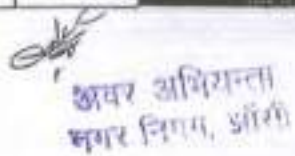 अवर अभियन्ता
नगर निगम, झाँसी